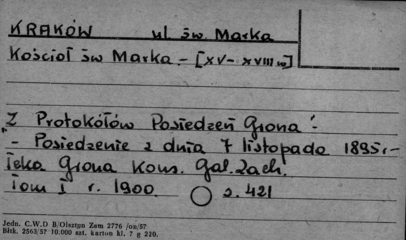 KRAKÓW ul św. Marka
Kościoł św Marka - [XV - XVIII w]
"Z Protokółów Posiedzeń Grona":
- Posiedzenie z dnia 7 listopada 1895 r -
Teka Grona Kons. Gal. Zach.
Tom I r. 1900. s. 421
Jedn. C.W.D B/Olsztyn Zam 2776 /on/57
Bltk. 2563/57 10.000 szt. karton kl. ? g 220.